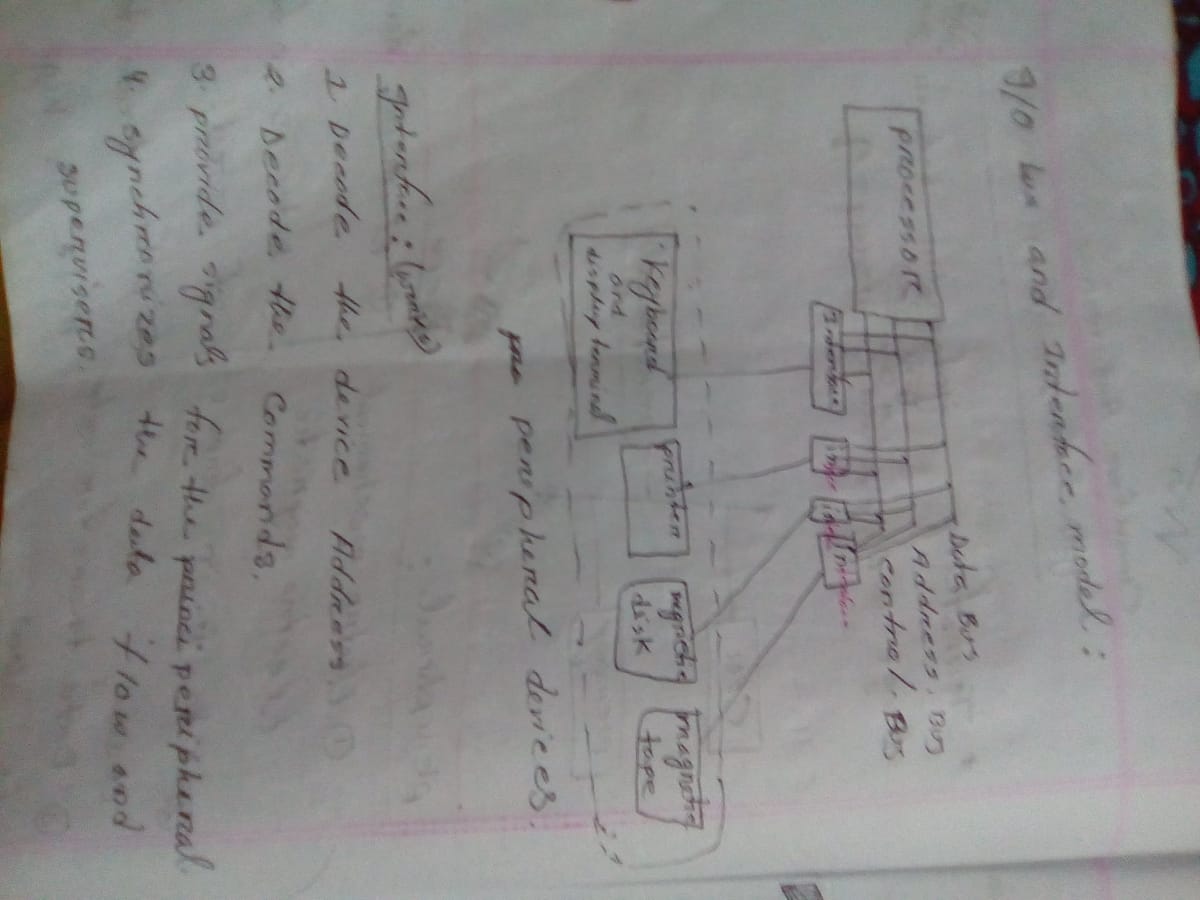 I/O bus and Interface model :
Data Bus
processore
Address. Bus
control. Bus
Interface
Interface
Keyboard
and
display terminal
printer
magnetic
disk
magnetic
tape
peripheral devices.
Interface : (works)
1 Decode the device Address.
2. Decode the Commands.
3. provide signals fore the princi peripheral.
4. synchronizes the data flow and
supervisers.